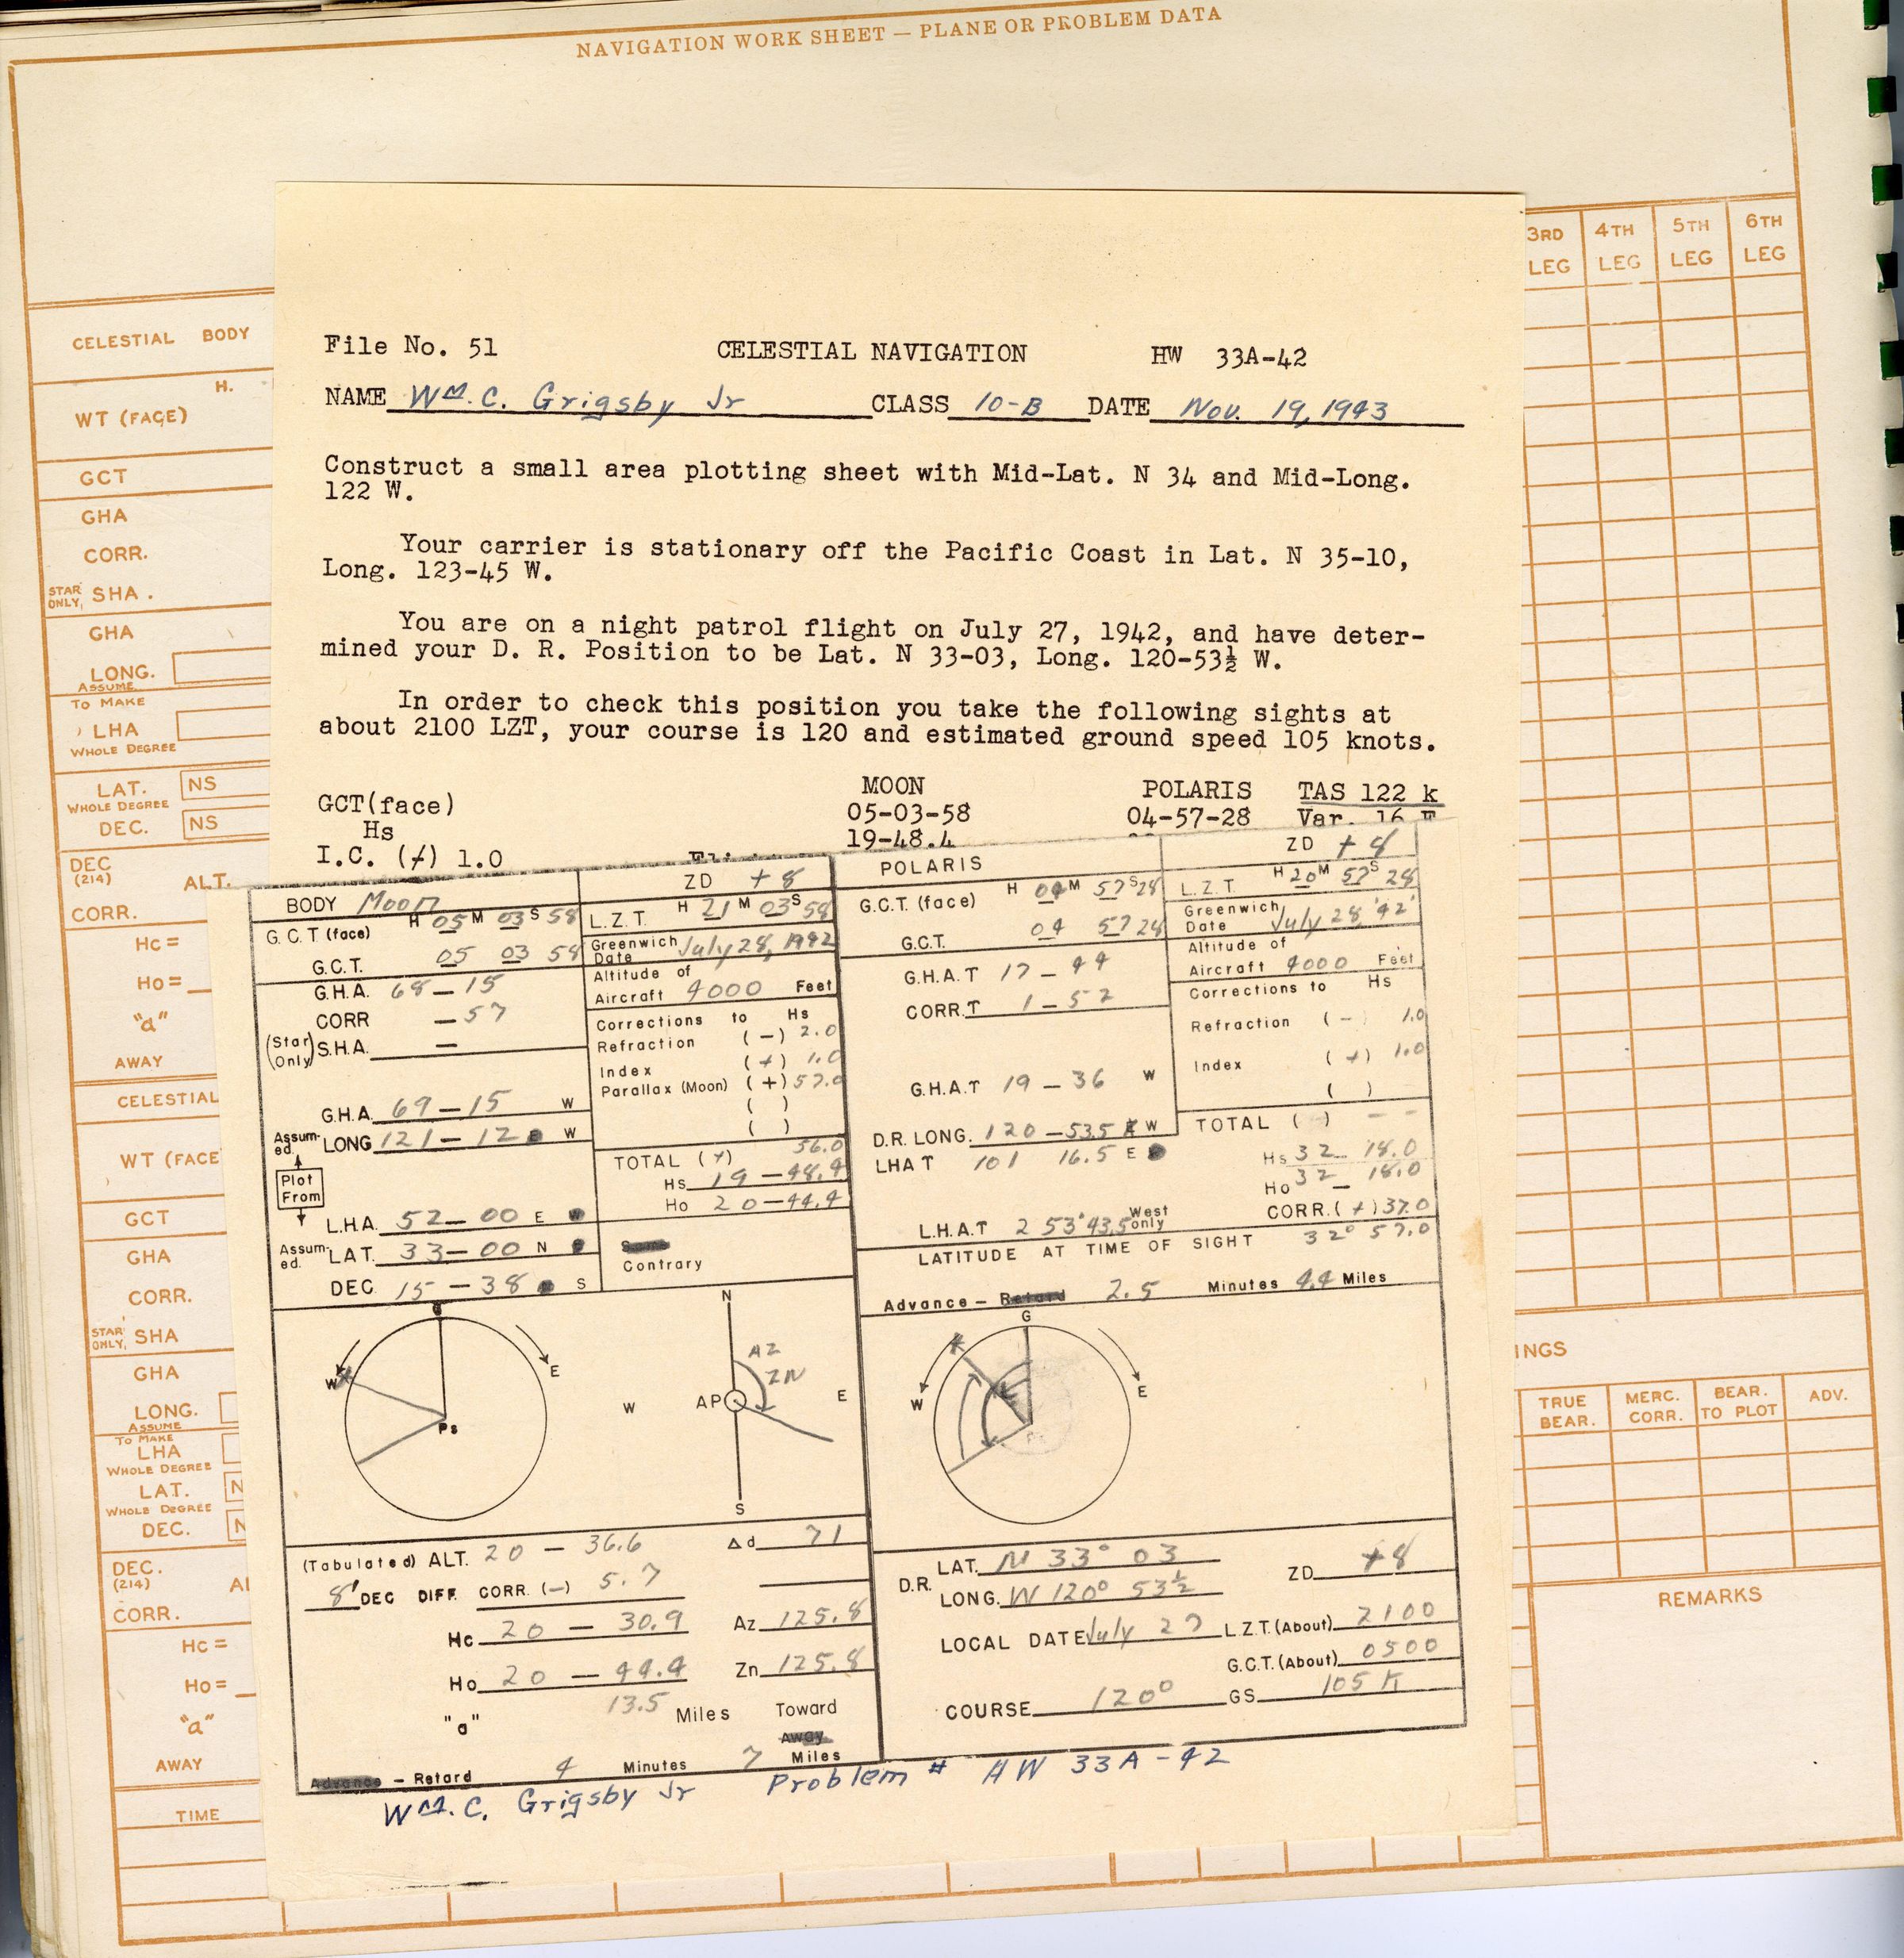 NAVIGATION WORK SHEET — PLANE OR PROBLEM DATA
3RD LEG
4TH LEG
5TH LEG
6TH LEG
CELESTIAL BODY
H.
WT (FACE)
GCT
GHA
CORR.
STAR ONLY, SHA .
GHA
LONG.
ASSUME
TO MAKE
LHA
WHOLE DEGREE
LAT. NS
WHOLE DEGREE
DEC. NS
DEC (214) ALT.
CORR.
Hc =
Ho =
"a"
AWAY
CELESTIAL
WT (FACE
GCT
GHA
CORR.
STAR ONLY, SHA
GHA
LONG.
ASSUME
TO MAKE
LHA
WHOLE DEGREE
LAT. N
WHOLE DEGREE
DEC. N
DEC. (214) Al
CORR.
Hc =
Ho =
"a"
AWAY
TIME
File No. 51 CELESTIAL NAVIGATION HW 33A-42
NAME Wm. C. Grigsby Jr CLASS 10-B DATE Nov. 19, 1943
Construct a small area plotting sheet with Mid-Lat. N 34 and Mid-Long.
122 W.
Your carrier is stationary off the Pacific Coast in Lat. N 35-10,
Long. 123-45 W.
You are on a night patrol flight on July 27, 1942, and have deter-
mined your D. R. Position to be Lat. N 33-03, Long. 120-53½ W.
In order to check this position you take the following sights at
about 2100 LZT, your course is 120 and estimated ground speed 105 knots.
MOON POLARIS TAS 122 k
GCT(face) 05-03-58 04-57-28 Var. 16 E
Hs 19-48.4
I.C. (+) 1.0
BODY Moon ZD +8
G.C.T (face) H 05 M 03 S 58 L.Z.T. H 21 M 03 S 58
G.C.T. 05 03 58 Greenwich Date July 28, 1942
G.H.A. 68-15 Altitude of Aircraft 4000 Feet
CORR -57 Corrections to Hs
(Star Only) S.H.A. — Refraction (-) 2.0
Index (+) 1.0
Parallax (Moon) (+) 57.0
( )
G.H.A. 69-15 W ( )
Assum-ed. LONG 121-12 W TOTAL (+) 56.0
Plot From Hs 19-48.4
L.H.A. 52-00 E Ho 20-44.4
Assum-ed. LAT. 33-00 N
Contrary
DEC 15-38 S
G
W
E
Ps
N
AZ
ZN
W
AP
E
S
(Tabulated) ALT. 20-36.6 Δd 71
8' DEC DIFF. CORR. (-) 5.7
Hc 20-30.9 Az 125.8
Ho 20-44.4 Zn 125.8
"a" 13.5 Miles Toward
Away
Advance - Retard 4 Minutes 7 Miles
POLARIS ZD +8
G.C.T. (face) H 04 M 57 S 28 L.Z.T. H 20 M 57 S 28
G.C.T. 04 57 28 Greenwich Date July 28 '42'
G.H.A.T 17-44 Altitude of Aircraft 4000 Feet
CORR.T 1-52 Corrections to Hs
Refraction (-) 1.0
Index (+) 1.0
G.H.A.T 19-36 W ( )
D.R. LONG. 120-53.5 W TOTAL ( ) --
LHA T 101 16.5 E Hs 32 18.0
Ho 32-18.0
L.H.A.T 253°43.5 West only CORR. (+) 37.0
LATITUDE AT TIME OF SIGHT 32° 57.0
Advance - Retard 2.5 Minutes 4.4 Miles
G
W
E
D.R. LAT. N 33° 03 ZD +8
LONG. W 120° 53½
LOCAL DATE July 27 L.Z.T. (About) 2100
G.C.T. (About) 0500
COURSE 120° GS 105 K
Wm. C. Grigsby Jr Problem # HW 33A-42
INGS
TRUE BEAR.
MERC. CORR.
BEAR. TO PLOT
ADV.
REMARKS